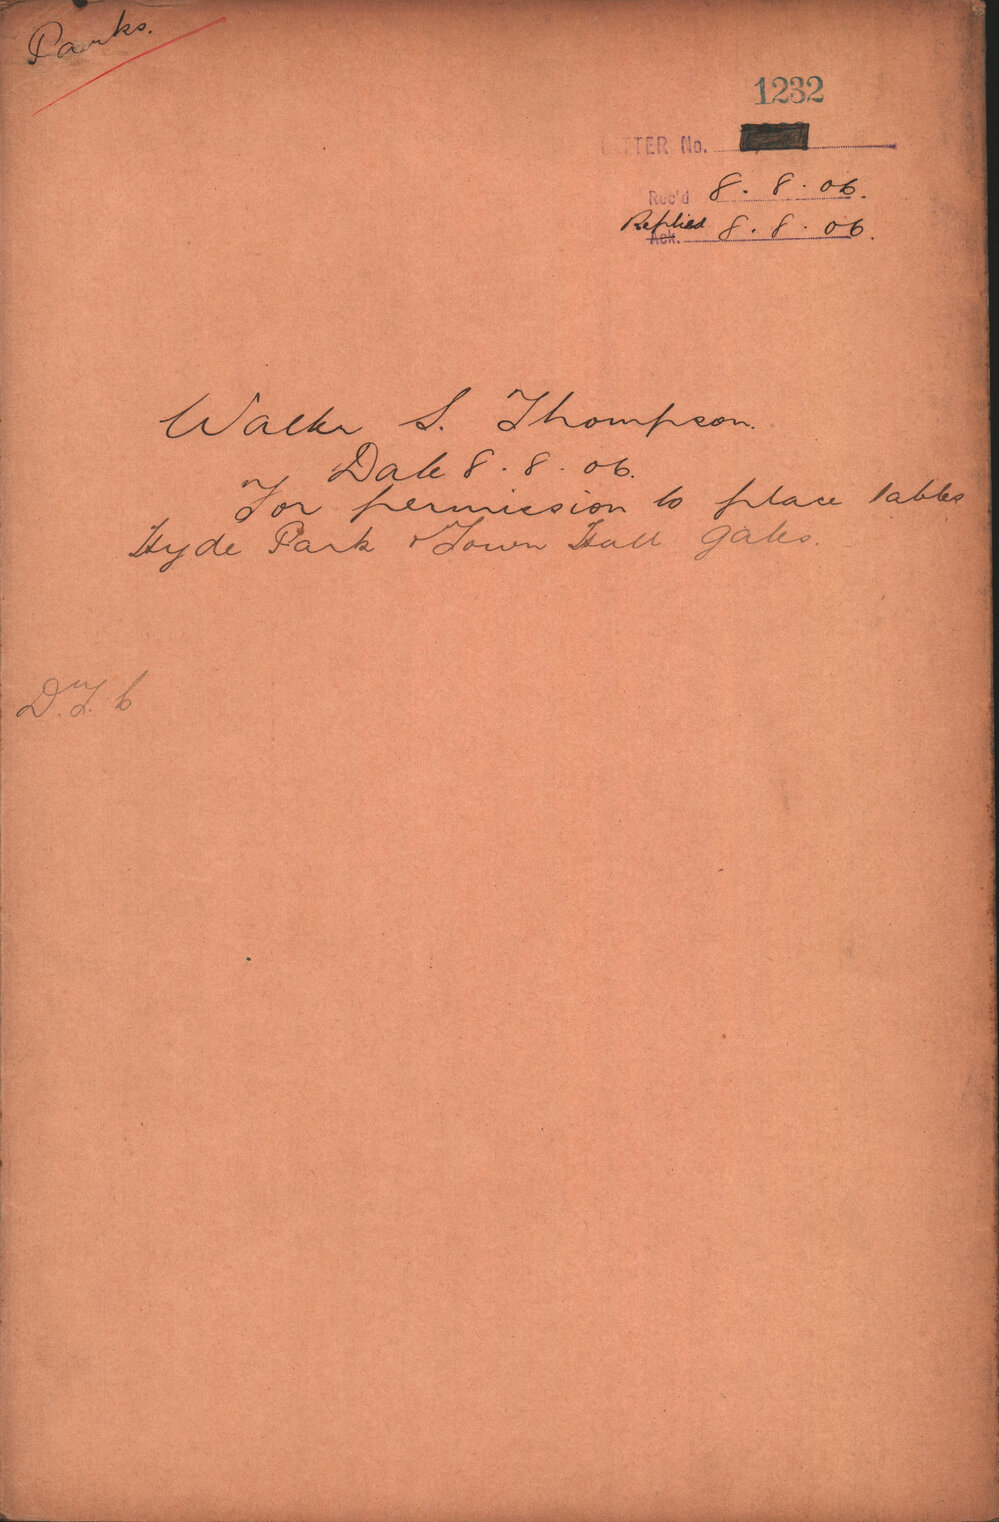 Parks.
1232
LETTER No.
Rec'd 8.8.06.
Replied
Ack. 8.8.06.
Walter S. Thompson.
Date 8.8.06.
For permission to place tables
Hyde Park & Town Hall gates.